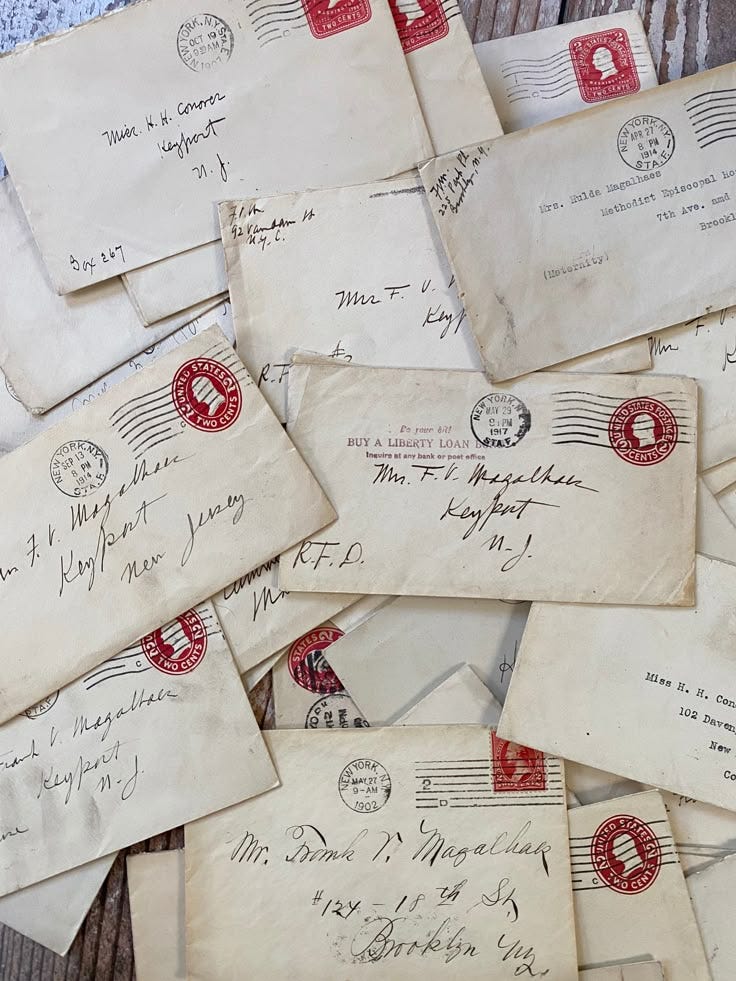 NEW YORK, N.Y. STA.
OCT 19
9 30 AM
1907
TWO CENTS
Miss. H. H. Conover
Keyport
N. J.
Box 267
2 UNITED STATES POSTAGE 2
WASHINGTON
TWO CENTS
225
Brooklyn, N.Y.
NEW YORK, N.Y.
APR 27
8 PM
1914
STA. F.
Mrs. Hulda Magalhaes
Methodist Episcopal Ho
7th Ave. and
Brookl
(Maternity)
92 Vandam St
N.Y.C.
Mrs F. V.
Keyp
R.F.
NEW YORK, N.Y.
SEP 13
PM
1914
STA. F.
UNITED STATES
2 2
TWO CENTS
F. V. Magalhaes
Keyport
New Jersey
Do your bit!
BUY A LIBERTY LOAN B
Inquire at any bank or post office
NEW YORK, N.Y.
MAY 29
PM
1917
STA. F.
UNITED STATES POSTAGE
2 CENTS 2
Mrs. F. V. Magalhaes
Keyport
N-J.
R.F.D.
TWO CENTS
Frank V. Magalhaes
Keyport
N-J.
STATES 2
Miss H. H. Con
102 Daven
New
Co
NEW YORK, N.Y.
MAY 27
9-AM
1902
2
D
Mr. Frank V. Magalhaes
#124 - 18th St,
Brooklyn N.Y.
UNITED STATES
2 2
TWO CENTS